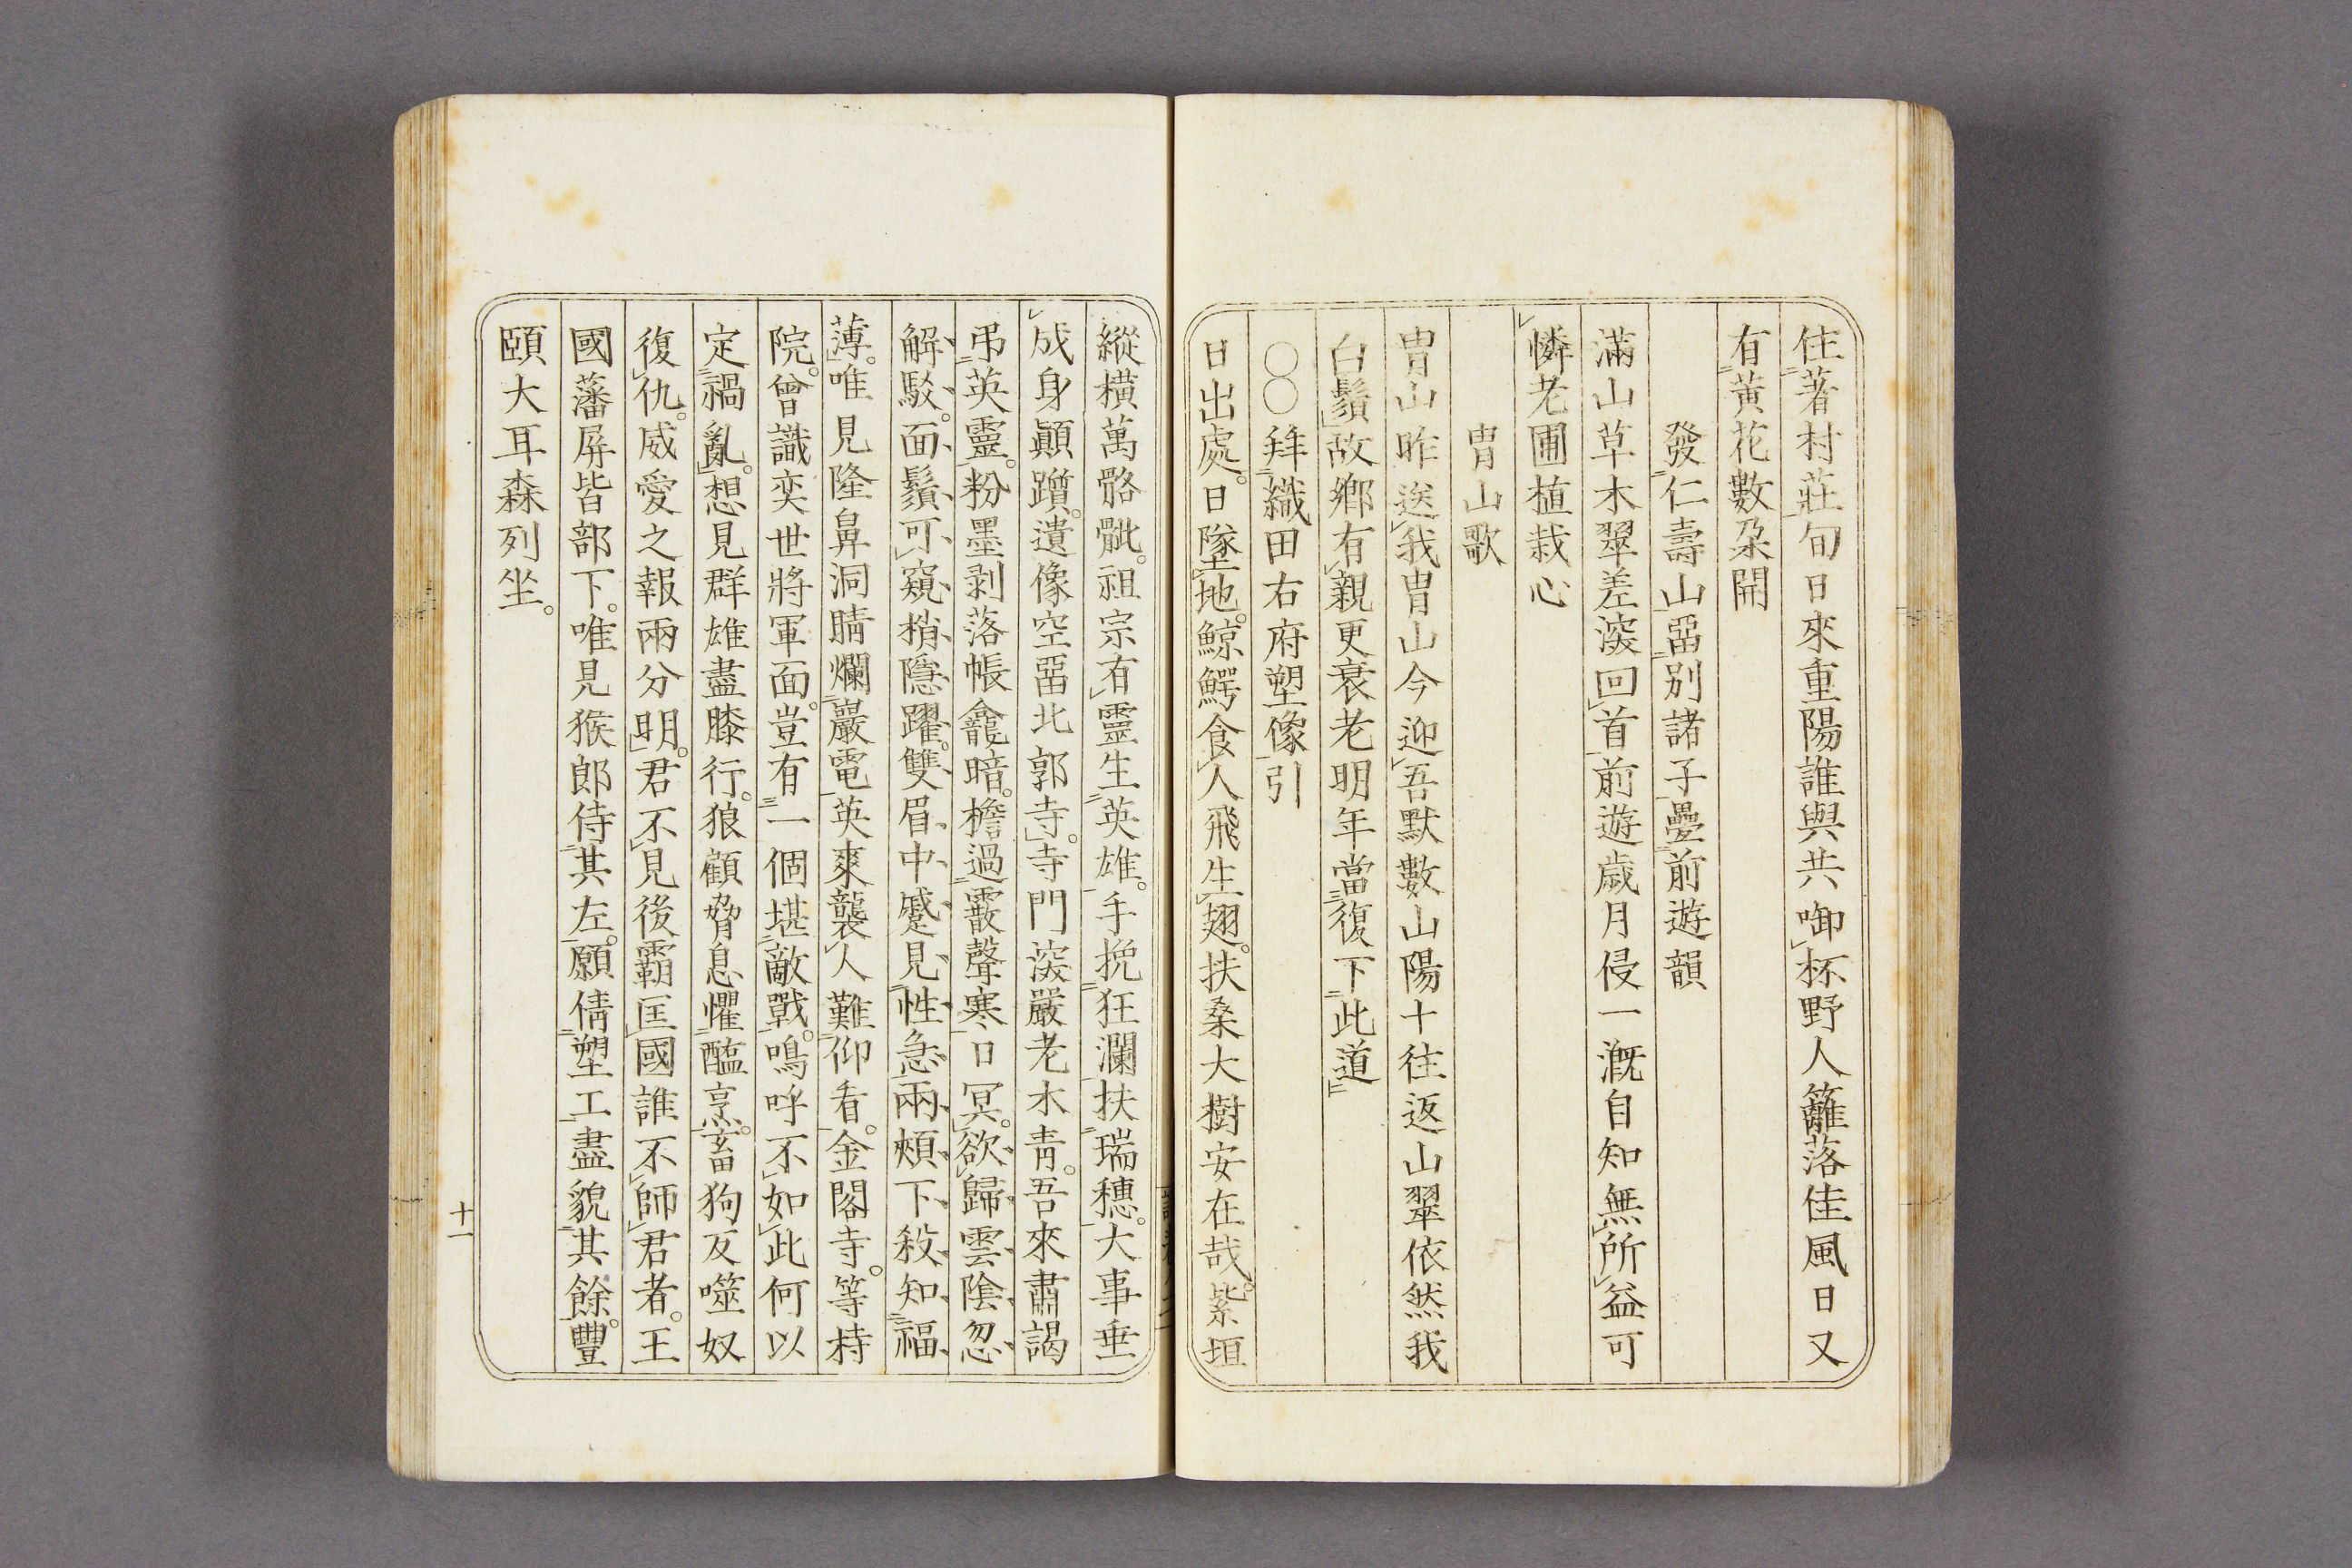 住著村莊旬日來重陽誰與共啣杯野人籬落佳風日又
有黃花數朶開
發仁壽山畱別諸子疊前遊韻
滿山草木翠差深回首前遊歲月侵一溉自知無所益可
憐老圃植栽心
冑山歌
冑山昨送我冑山今迎吾默數山陽十往返山翠依然我
白鬚故鄉有親更衰老明年當復下此道
〇〇拜織田右府塑像引
日出處。日墜地。鯨鰐食人飛生翅。扶桑大樹安在哉。紫垣
縱橫萬骼骴。祖宗有靈生英雄。手挽狂瀾扶瑞穗。大事垂
成身顚躓。遺像空畱北郭寺。寺門深嚴老木靑。吾來肅謁
弔英靈。粉墨剥落帳龕暗。檐過霰聲寒日冥。欲歸雲陰忽
解駁。面鬚可窺梢隱躍。雙眉中蹙見性急兩頰下殺知福
薄。唯見隆鼻洞睛爛巖電英爽襲人難仰看。金閣寺。等持
院。曾識奕世將軍面。豈有一個堪敵戰。嗚呼不如此何以
定禍亂。想見群雄盡膝行。狼顧脅息懼醢烹。畜狗反噬奴
復仇。威愛之報兩分明。君不見後霸匡國誰不師君者。王
國藩屏皆部下。唯見猴郎侍其左。願倩塑工盡貌其餘。豐
頤大耳森列坐。
十一